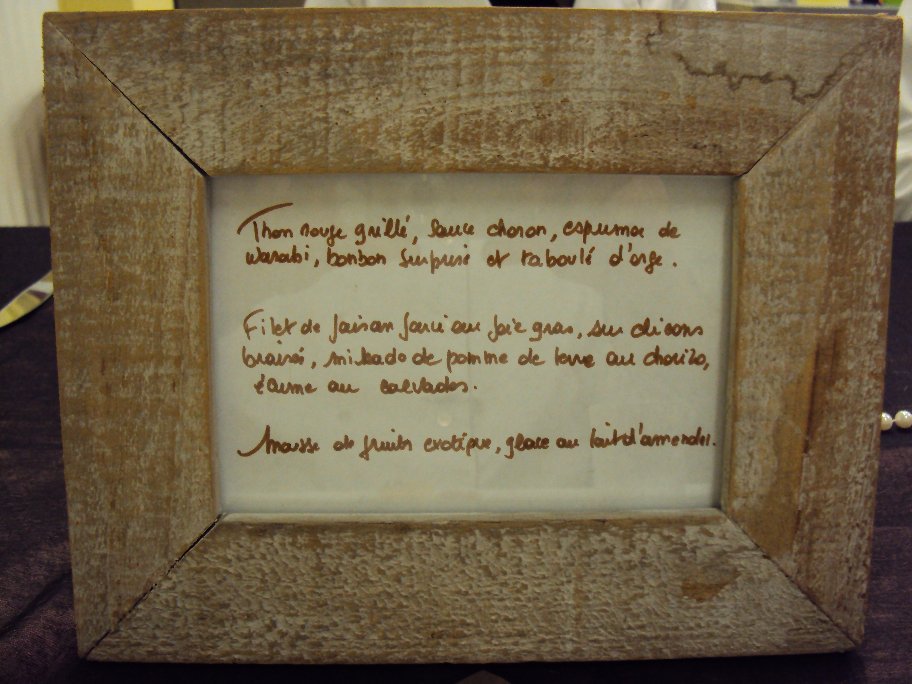 Thon rouge grillé, sauce choron, espuma de
wasabi, bonbon surprise et taboulé d'orge.
Filet de faisan farci au foie gras, sur chicons
braisés, mikado de pomme de terre au chorizo,
écume au calvados.
Mousse de fruits exotique, glace au lait d'amandes.